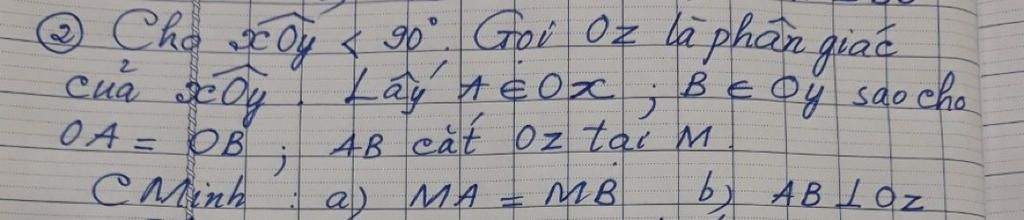 ② Cho \widehat{xOy} < 90°. Gọi Oz là phân giác
của \widehat{xOy}. Lấy A ∈ Ox ; B ∈ Oy sao cho
OA = OB ; AB cắt Oz tại M.
CMinh : a) MA = MB b) AB ⊥ Oz